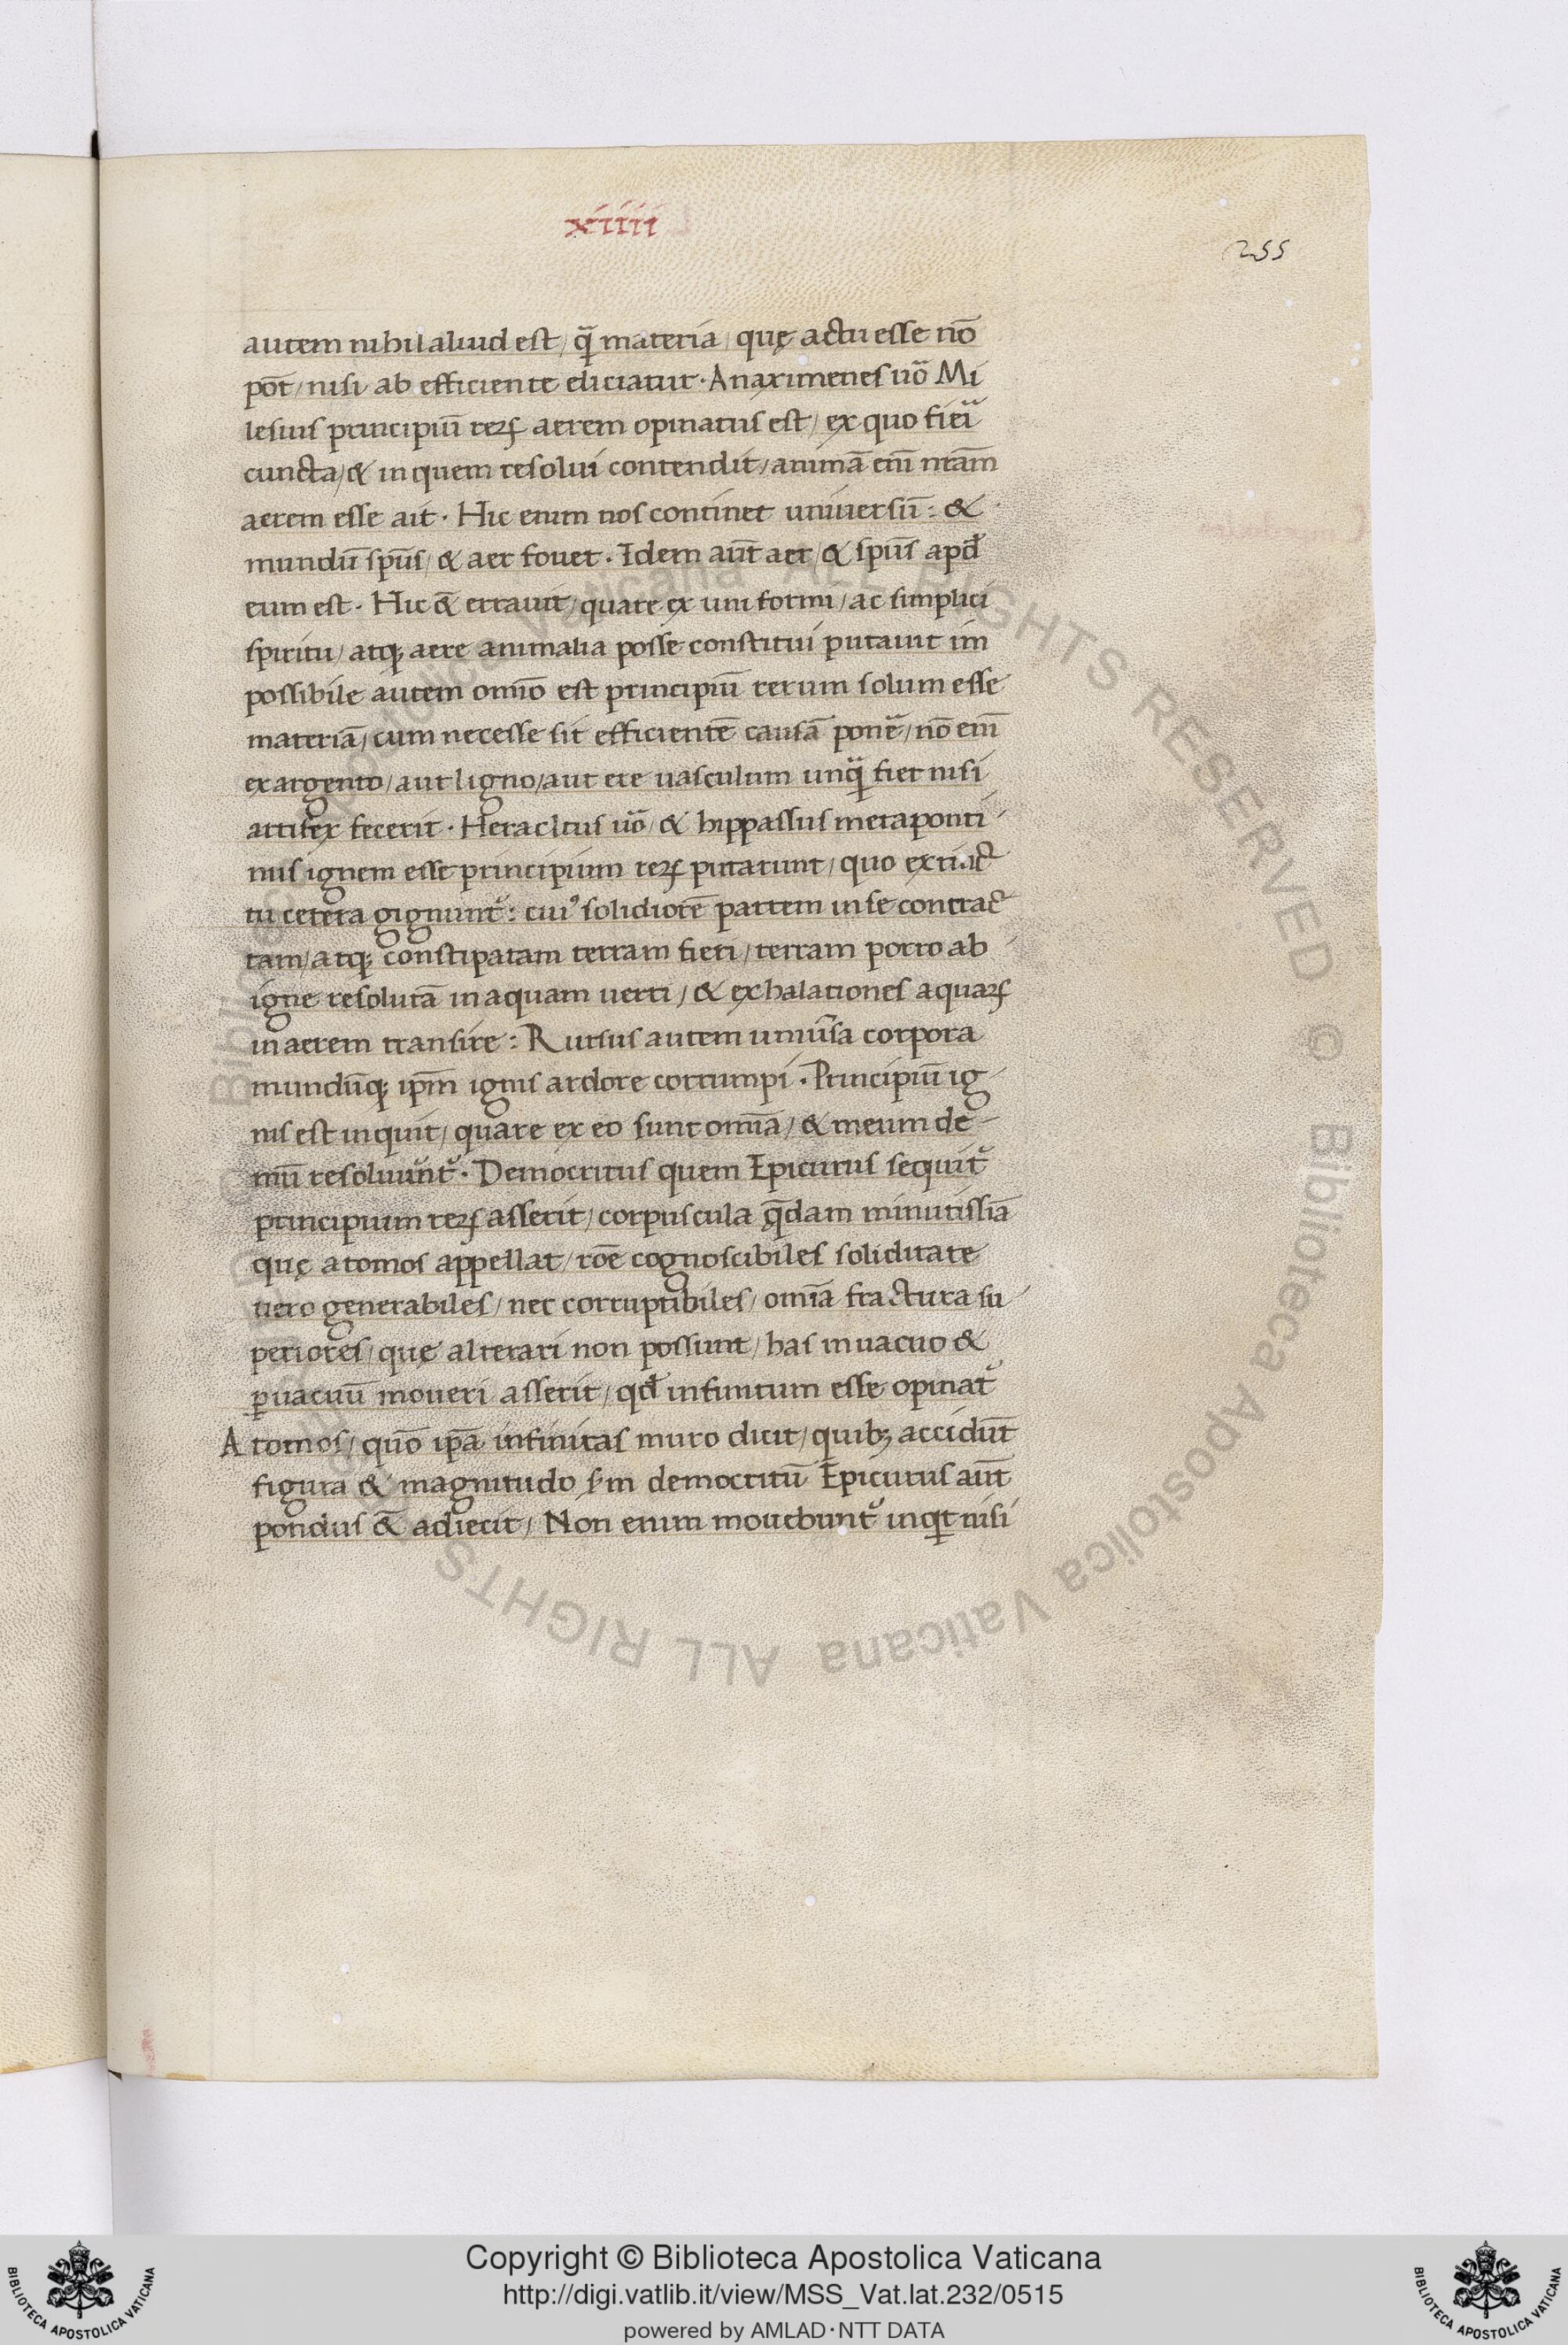 xiiii
255
autem nihil aliud est / q̃ materia / quę actu esse nō
pōt / nisi ab efficiente eliciatur · Anaximenes uõ Mi
lesius principiū rerꝝ aerem opinatus est / ex quo fieri
cuncta / & in quem resolui contendit / animā em̄ nrām
aerem esse ait · Hic enim nos continet uniuersū : &
mundū spūs / & aer fouet · Idem aūt aer / & spūs apđ
eum est · Hic &̄ errauit / quare ex uni formi / ac simplici
spiritu / atq; aere animalia posse constitui putauit im
possibile autem omīo est principiū rerum solum esse
materiā / cum necesse sit efficientē causā ponē / nō em̄
ex argento / aut ligno / aut ere uasculum unq̃ fiet nisi
artifex fecerit · Heraclitus uõ / & hippassus metaponti
nus ignem esse principium rerꝝ putarunt / quo extinc
tu cetera gignunt᷑ : cui⁹ solidiorē partem in se contrac
tam / atq; constipatam terram fieri / terram porro ab
igne resolutā in aquam uerti / & exhalationes aquarꝝ
in aerem transire : Rursus autem uniūsa corpora
mundūq; ipm̄ ignis ardore corrumpi · Principiū ig
nis est inquit / quare ex eo sunt omīa / & in eum de
mū resoluunt᷑ · Democritus quem Epicurus sequit᷑
principium rerꝝ asserit / corpuscula q̄dam minutissīa
quę atomos appellat / rōe cognoscibiles soliditate
uero generabiles / nec corruptibiles / omīa fractura su
periores / quę alterari non possunt / has in uacuo &
ꝑ uacuū moueri asserit / qđ infinitum esse opinat᷑
Atomos / quō ipā infinitas muro dicit / quibꝫ accidūt
figura & magnitudo sm democritū Epicurus aūt
pondus &̄ adiecit / Non enim mouebunt᷑ inqt nisi
Biblioteca Apostolica Vaticana ALL RIGHTS RESERVED © Biblioteca Apostolica Vaticana ALL RIGHTS
BIBLIOTECA APOSTOLICA VATICANA
Copyright © Biblioteca Apostolica Vaticana
http://digi.vatlib.it/view/MSS_Vat.lat.232/0515
powered by AMLAD·NTT DATA
BIBLIOTECA APOSTOLICA VATICANA